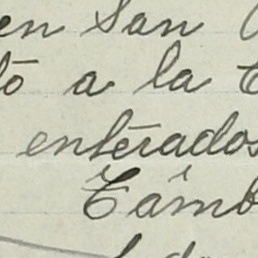 en San
to a la
enterados
Tamb